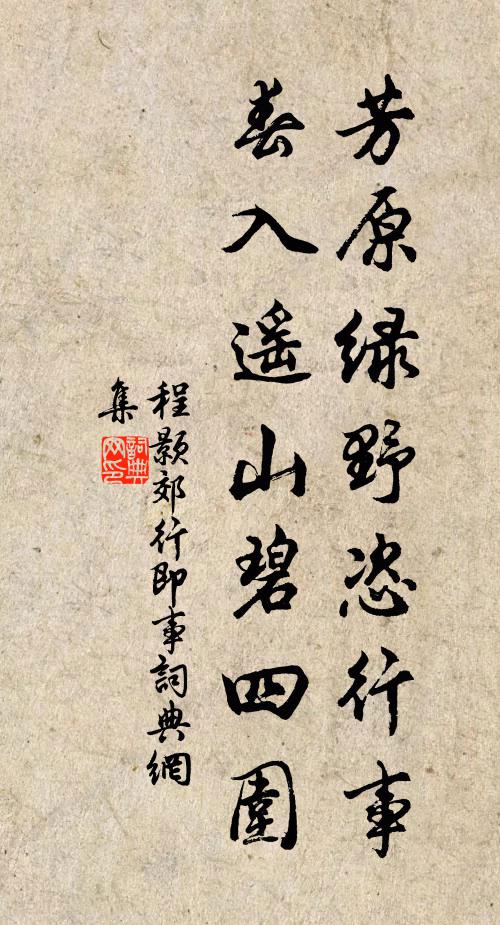 芳原绿野恣行事
春入遥山碧四围
程颢郊行即事詞典網
集
詞典网印